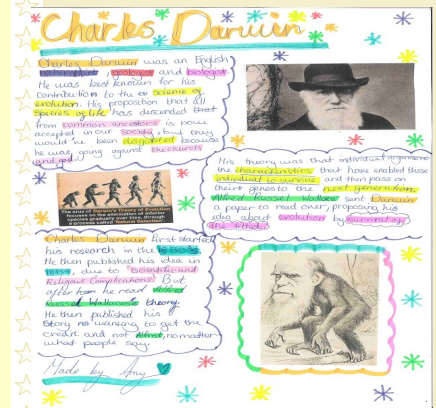 Charles Darwin
Charles Darwin was an English
naturalist, geologist and biologist.
He was best known for his
contribution to the science of
evolution. His proposition that all
species of life has descended that
from common ancestors is now
accepted in our society, but they
would've been disgusted because
he was going against the church
and god.
His theory was that individual organisms
the characteristics that have enabled these
individual to survive and then pass on
their genes to the next generation.
Alfred Russel Wallace sent Darwin
a paper to read over, proposing his
idea about evolution by survival of
the fittest.
The crux of Darwin's Theory of Evolution
focuses on the elimination of inferior
species gradually over time, through
a process called 'Natural Selection'
Charles Darwin first started
his research in the
He then published his idea in
due to 'Scientific and
Religious Complications'. But
after he read Alfred
Russel Wallace's theory.
He then published his
Story no wanting to get the
credit and not Alfred, no matter
what people say.
Made by Amy